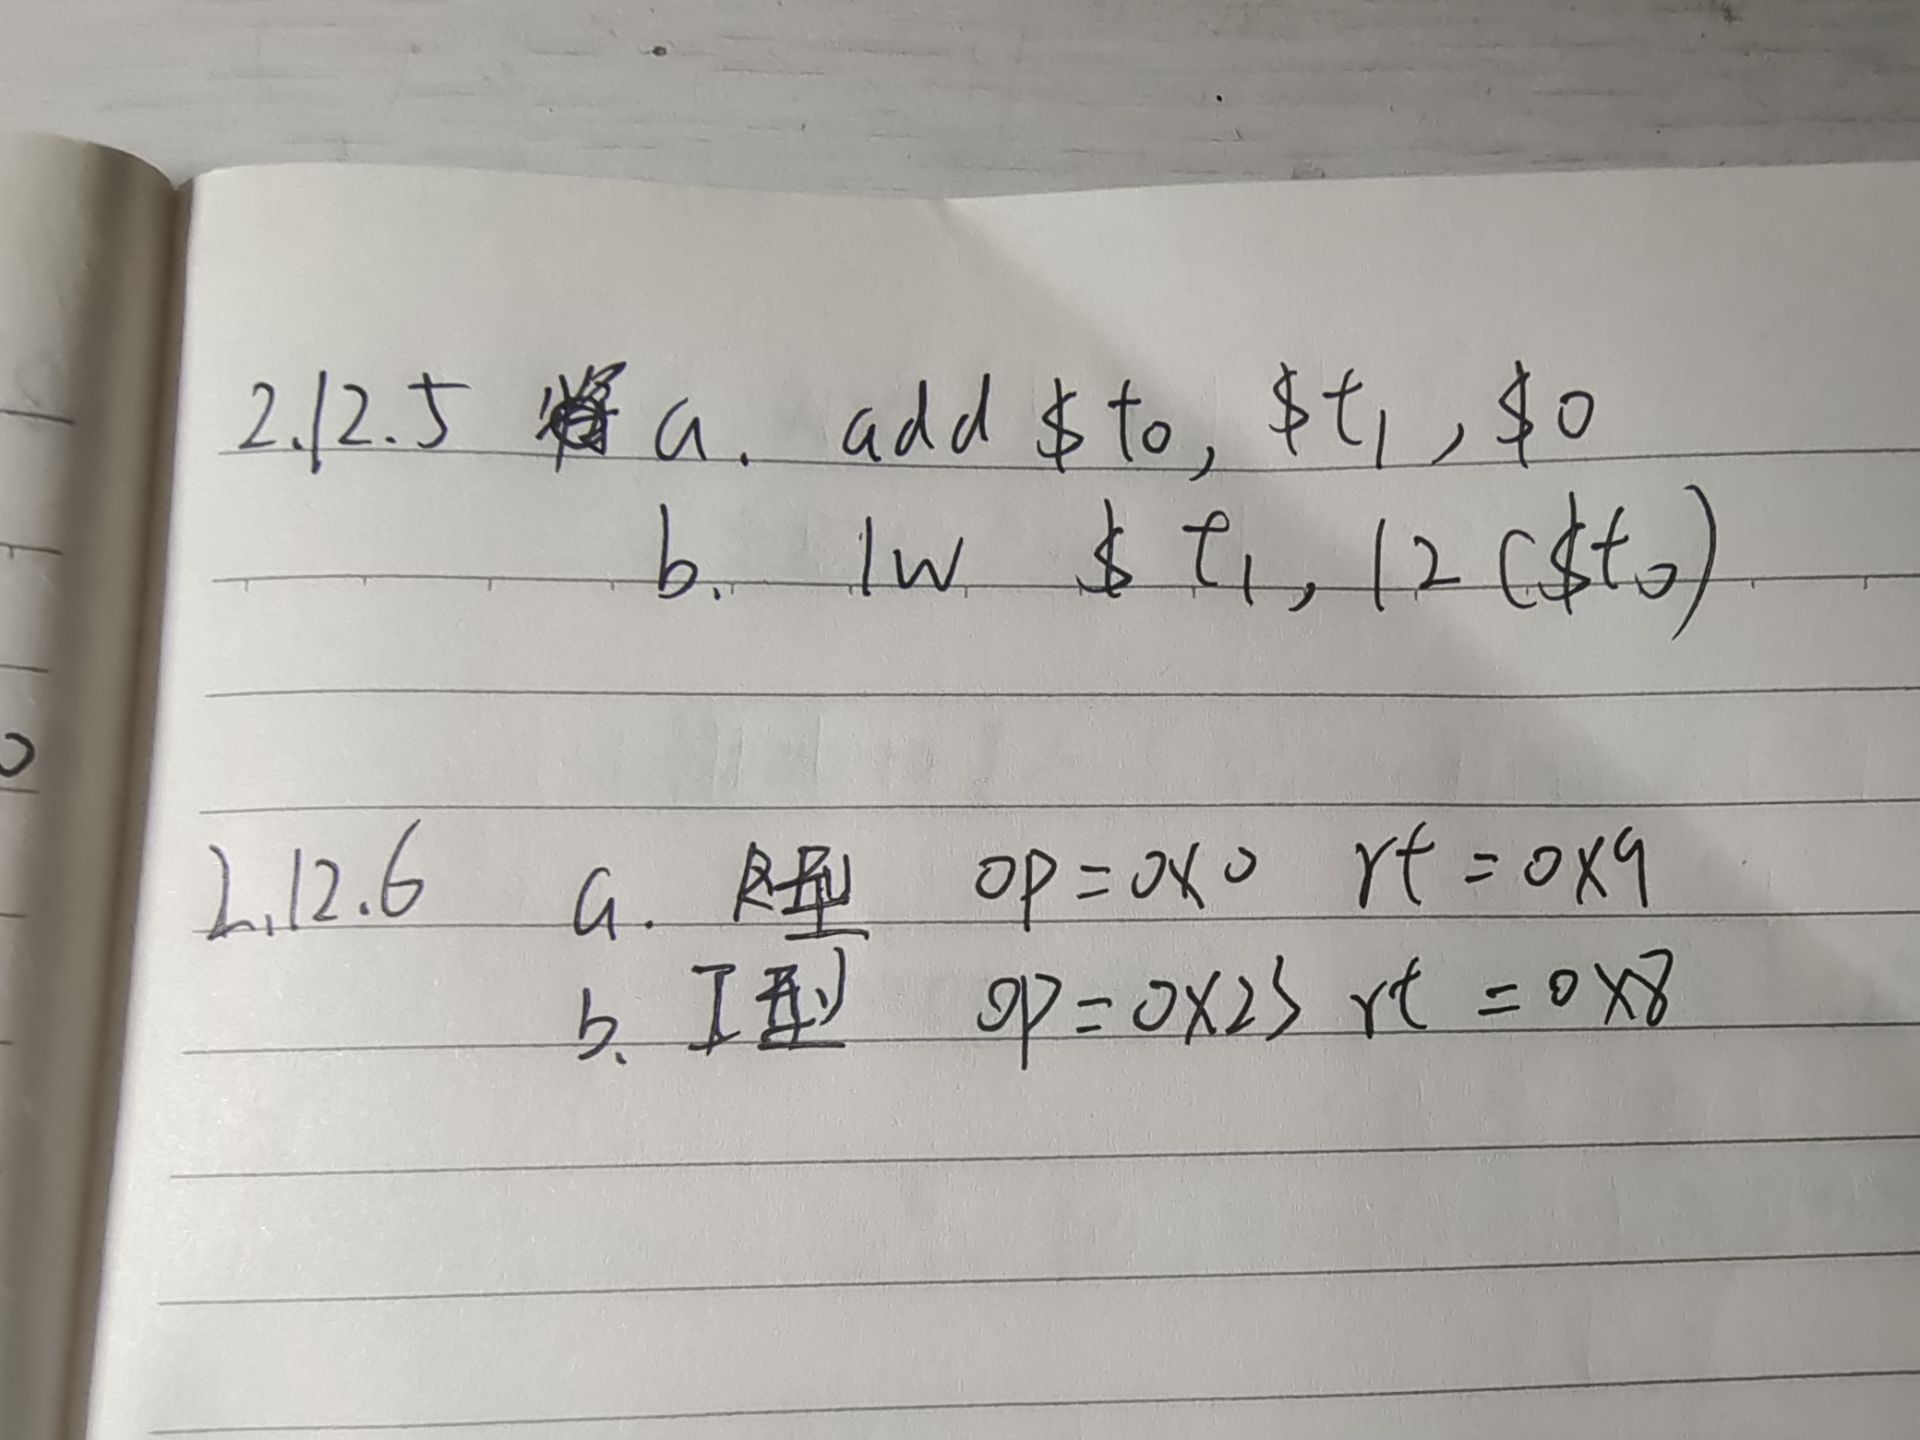 2.12.5 a. add $t0, $t1, $0
b. lw $t1, 12($t0)
2.12.6 a. R型 op=0x0 rt=0x9
b. I型 op=0x23 rt=0x8